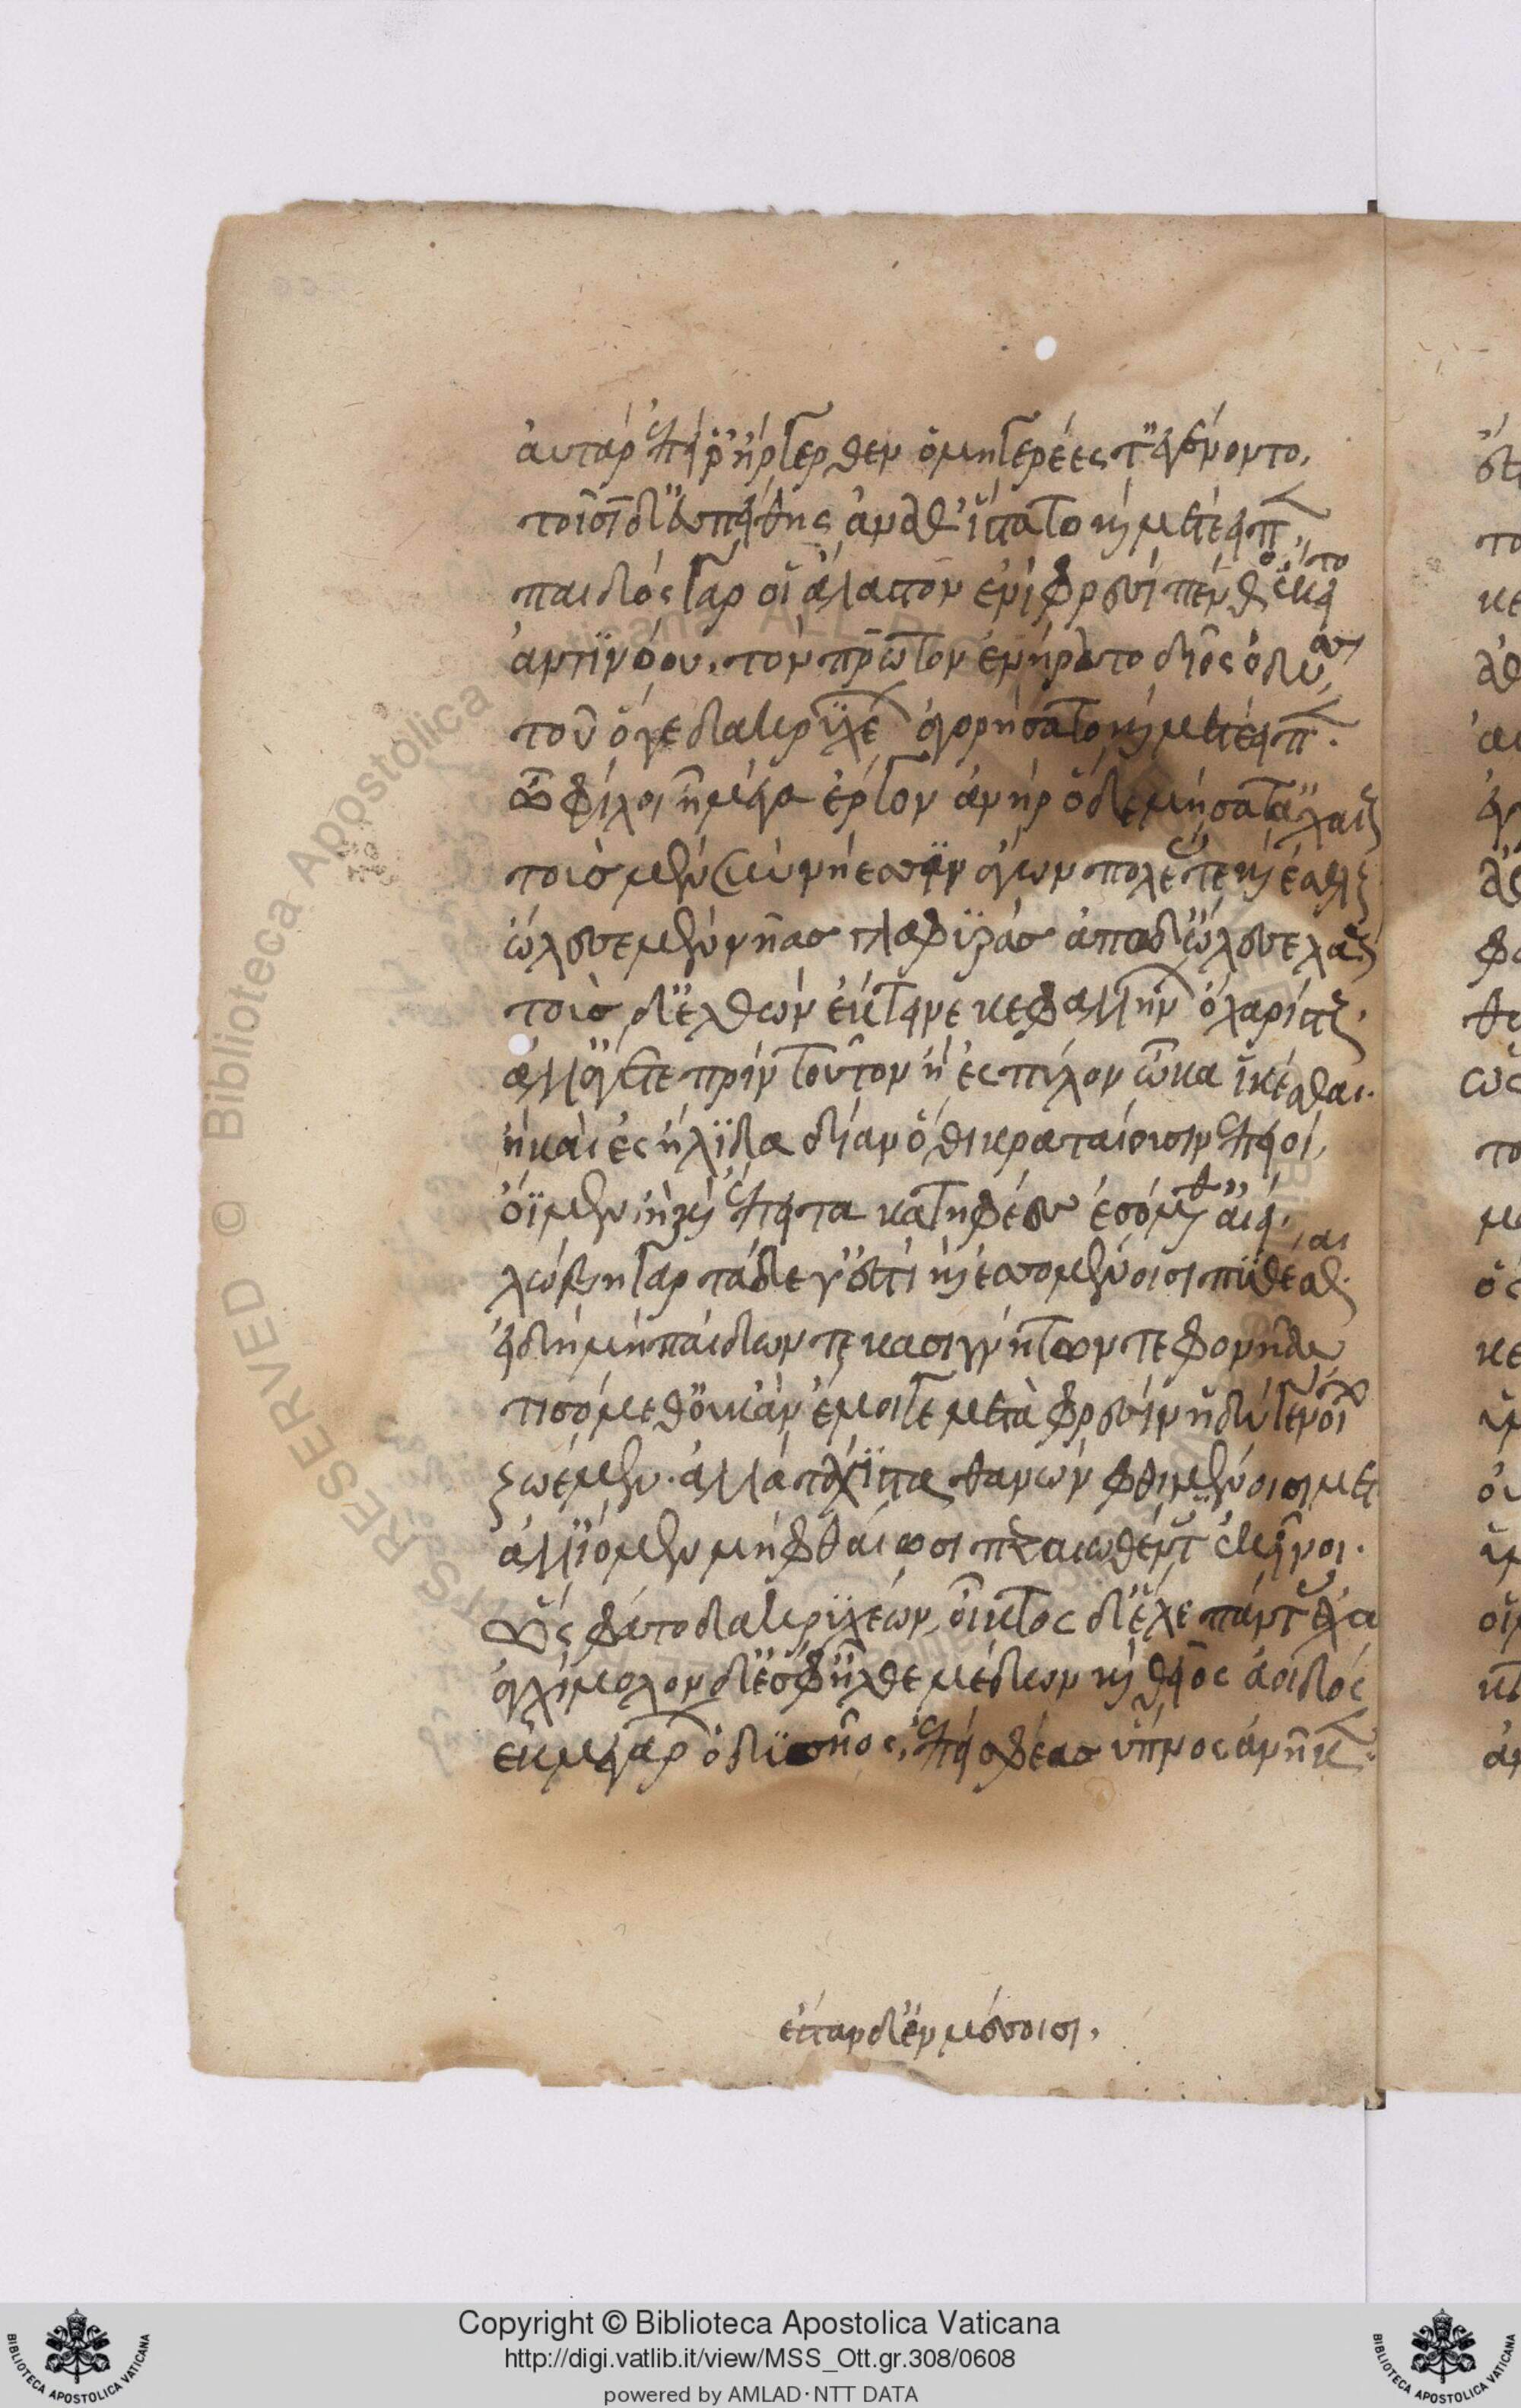 αὐτὰρ ἐπεί ῥ' ἤγερθεν ὁμηγερέες τ' ἐγένοντο.
τοῖσι δ' εὐπείθης ἀνά θ' ἵστατο καὶ μετέειπ
παιδὸς γάρ οἱ ἄλαστον ἐνὶ φρεσὶ πένθος ἔκειτο
ἀντινόου. τὸν πρῶτον ἐνήρατο δῖος ὀδυσ
τοῦ ὅγε δακρυχέ ἀγορήσατο καὶ μετέειπ.
ὦ φίλοι ἦ μέγα ἔργον ἀνὴρ ὅδε μήσατ' ἀχαι
τοὺς μὲν σὺν νήεσσιν ἄγων πολέας τε καὶ ἐσθλ
ὤλεσε μὲν νῆας γλαφυρὰς ἀπὸ δ' ὤλεσε λα
τοὺς δ' ἐλθὼν ἔκτεινε κεφαλλήν ὀχ' ἀρίστ
ἀλλ' ἄγετε πρὶν τοῦτον ἢ ἐς πύλον ὦκα ἱκέσθαι.
ἢ καὶ ἐς ἤλιδα δῖαν ὅθι κρατέουσιν ἐπειοί,
ἴομεν. ἢ καὶ ἔπειτα κατηφέες ἐσόμεθ' αἰεί.
λώβη γὰρ τάδε γ' ἐστὶ καὶ ἐσσομένοισι πυθέσθαι
εἰ δὴ μὴ παίδων τε κασιγνήτων τε φονῆας
τισόμεθ' οὐκ ἂν ἔμοιγε μετὰ φρεσὶν ἡδὺ γένοιτο
ζωέμεν. ἀλλὰ τάχιστα θανὼν φθιμένοισι μετ
ἀλλ' ἴομεν μὴ φθαίωσι περαιωθέντ ἐκεῖνοι.
ὣς φάτο δακρυχέων, οἶκτος δ' ἕλε πάντ ἀχα
ἀγχίμολον δέ σφ' ἦλθε μέδων καὶ θεῖος ἀοιδός
ἐκ μεγάρ ὀδυσῆος, ἐπεί σφεας ὕπνος ἀνῆκ.
ἔσταν δ' ἐν μέσσοισι,
Copyright © Biblioteca Apostolica Vaticana
http://digi.vatlib.it/view/MSS_Ott.gr.308/0608
powered by AMLAD·NTT DATA